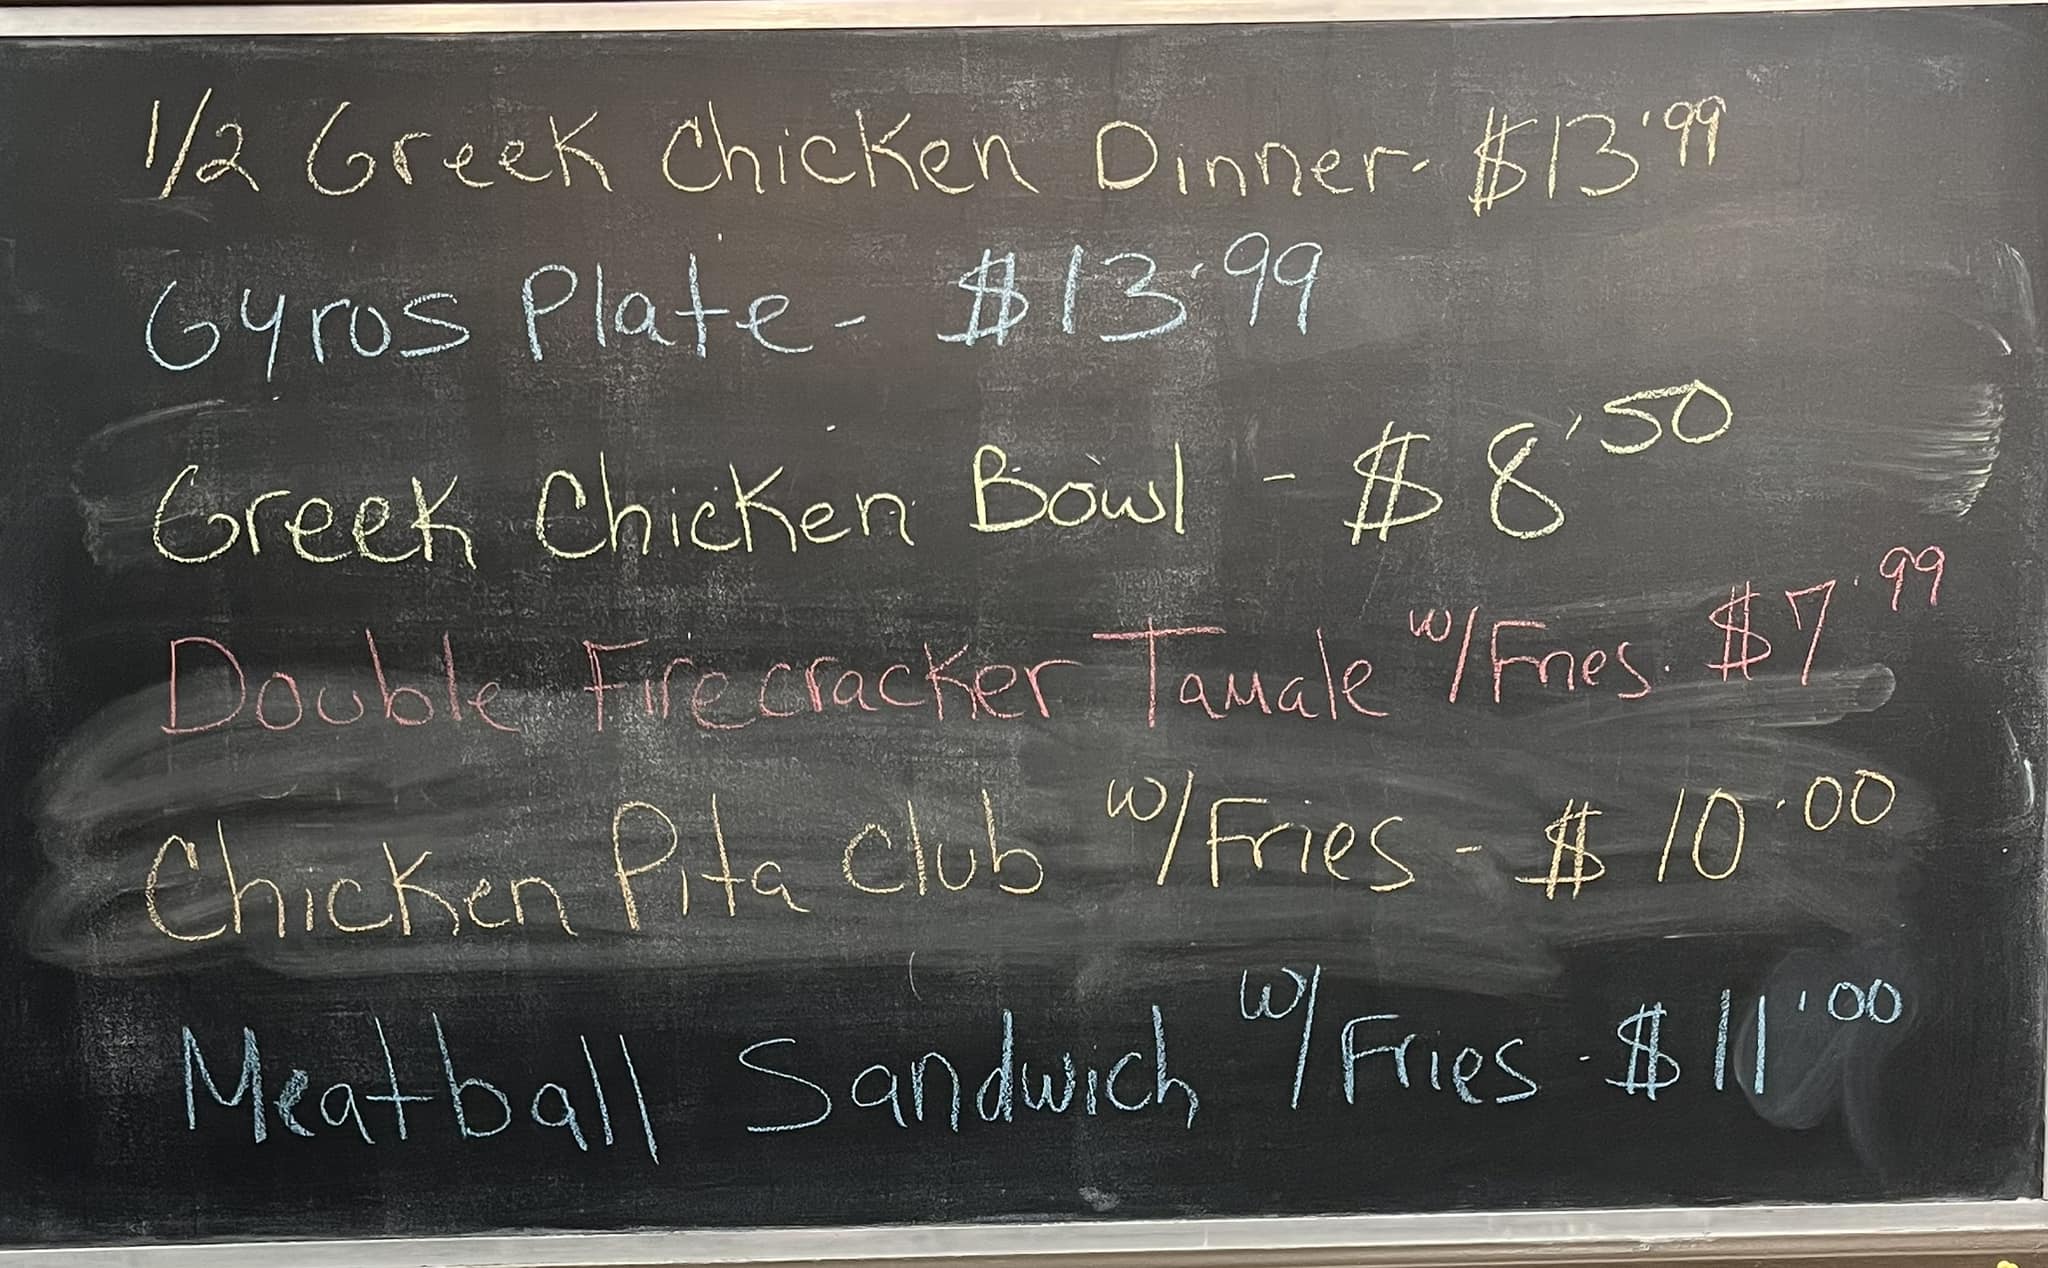 1/2 Greek Chicken Dinner- $13.99
Gyros Plate - $13.99
Greek Chicken Bowl - $8.50
Double Firecracker Tamale w/Fries. $7.99
Chicken Pita Club w/Fries - $10.00
Meatball Sandwich w/Fries - $11.00